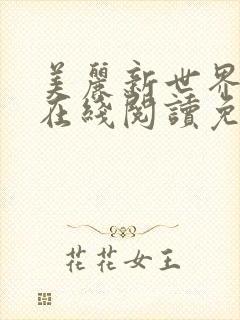 美麗新世界
在綫閱讀免
花花女王